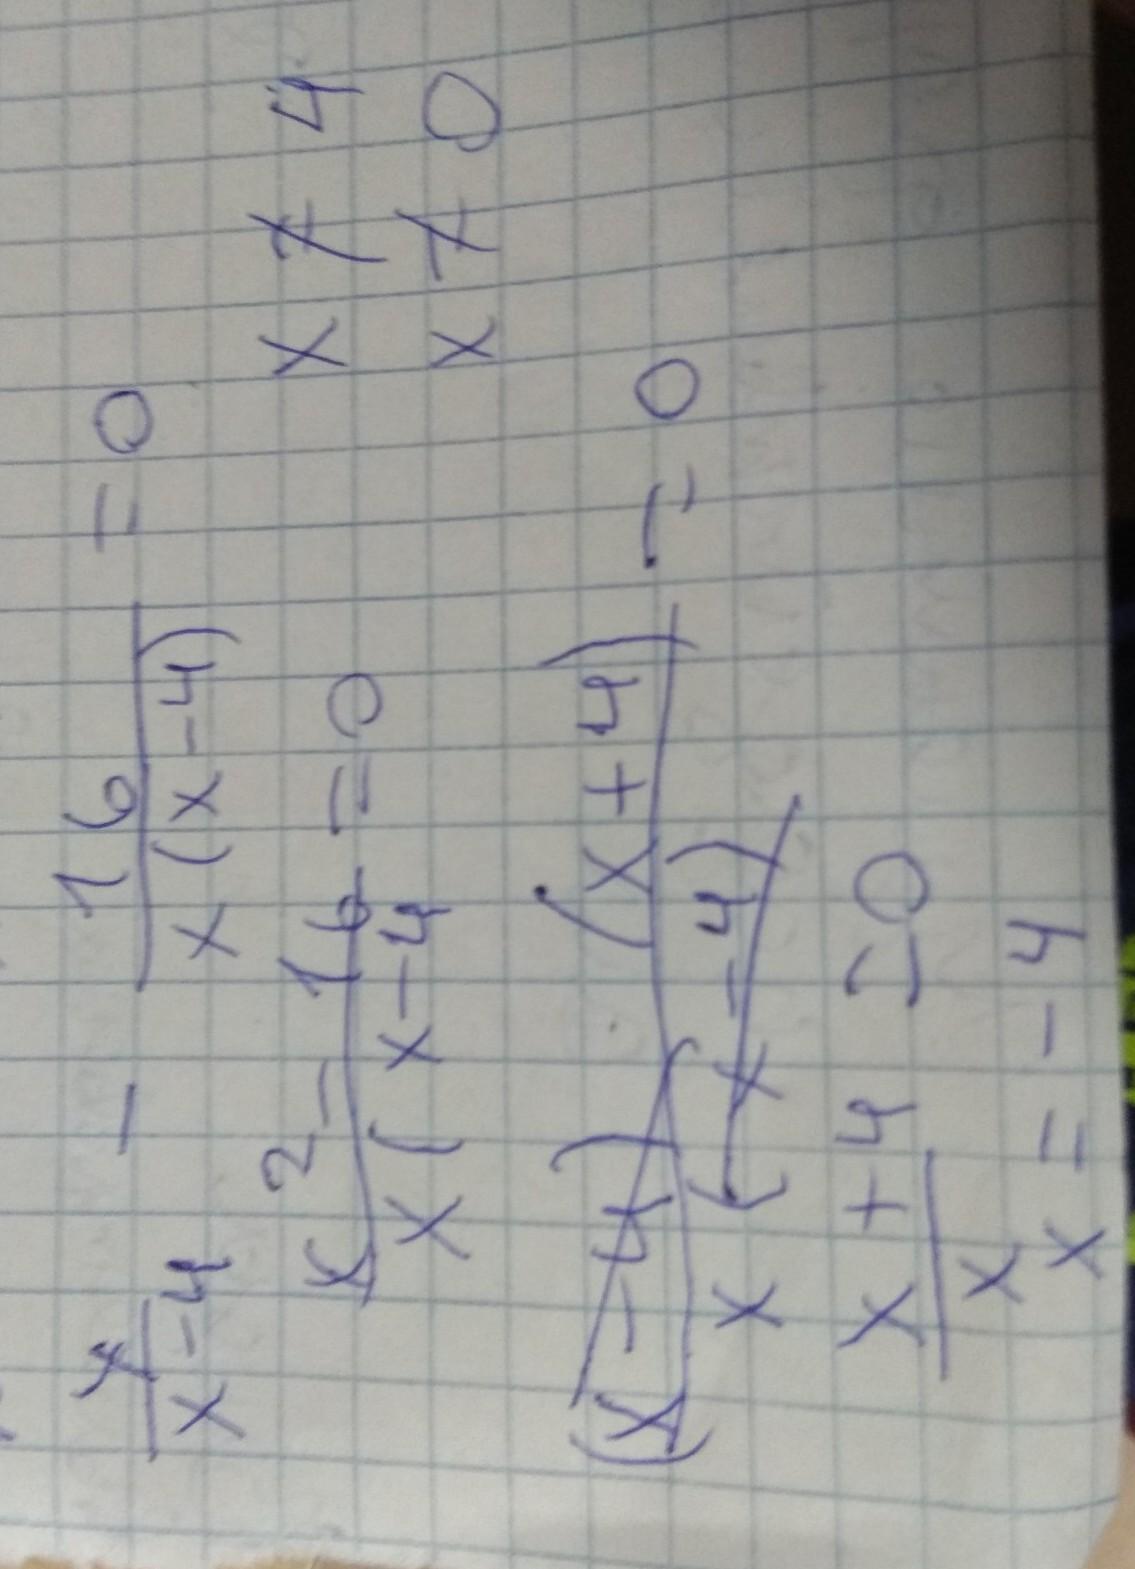 x/(x-4) - 16/(x(x-4)) = 0
x ≠ 4
(x² - 16)/(x(x-4) = 0
x ≠ 0
((x-4)(x+4))/(x(x-4)) = 0
(x+4)/x = 0
x = -4